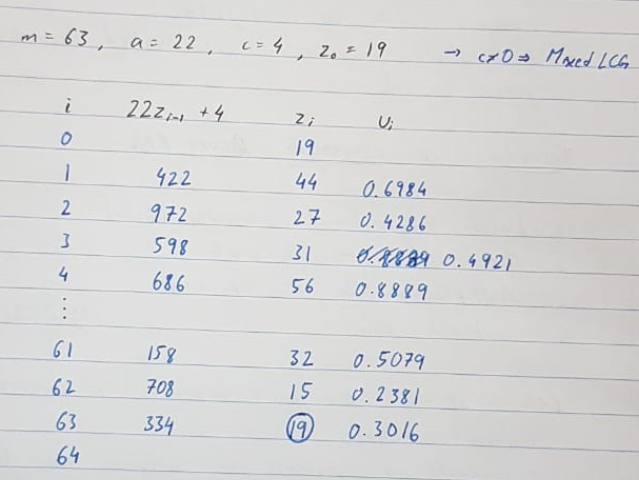 m = 63, a = 22, c = 4, z₀ = 19 → c≠0 ⇒ Mixed LCG
i 22zᵢ₋₁ + 4 zᵢ Uᵢ
0 19
1 422 44 0.6984
2 972 27 0.4286
3 598 31 0.4921
4 686 56 0.8889
⋮
61 158 32 0.5079
62 708 15 0.2381
63 334 19 0.3016
64